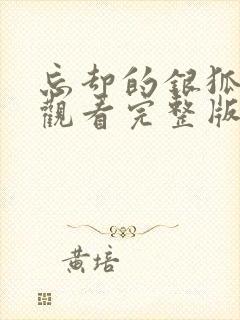 忘却的银狐
觀看完整版
黄培